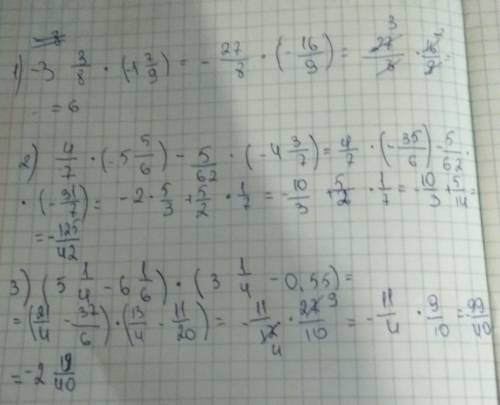 1) -3 3/8 · (-1 7/9) = - 27/8 · (- 16/9) = 27/8 · 16/9 =
= 6
2) 4/7 · (-5 5/6) - 5/62 · (-4 3/7) = 4/7 · (- 35/6) - 5/62 ·
· (- 31/7) = -2 · 5/3 + 5/2 · 1/7 = - 10/3 + 5/2 · 1/7 = - 10/3 + 5/14 =
= - 125/42
3) (5 1/4 - 6 1/6) · (3 1/4 - 0,55) =
= (21/4 - 37/6) · (13/4 - 11/20) = - 11/12 · 27/10 = - 11/4 · 9/10 = - 99/40
= -2 19/40